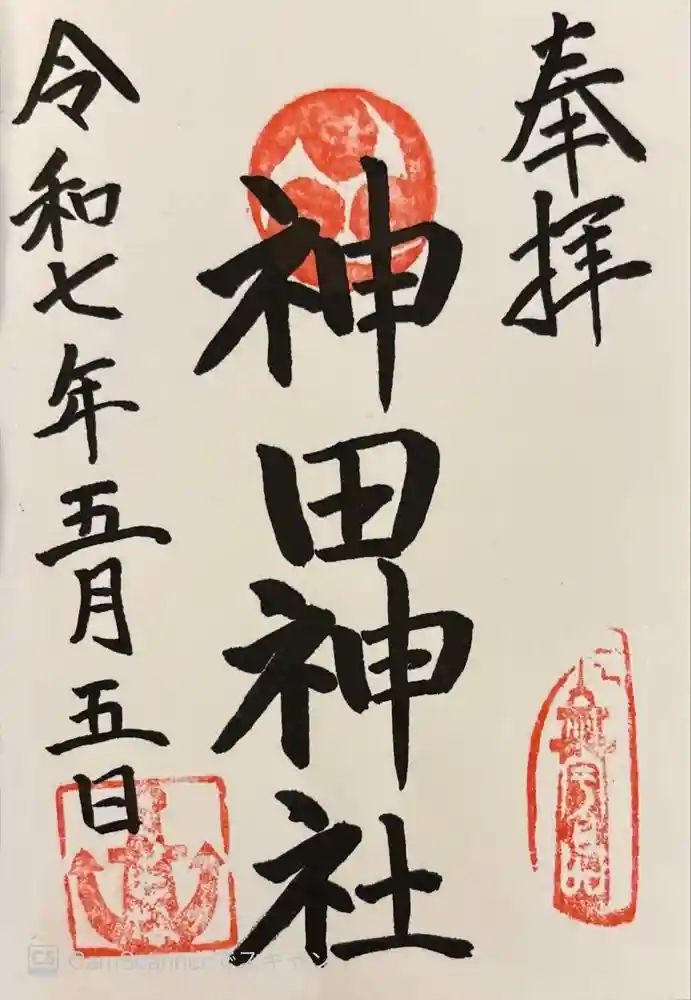 奉拝
神田神社
令和七年五月五日
CS CamScannerでスキャン